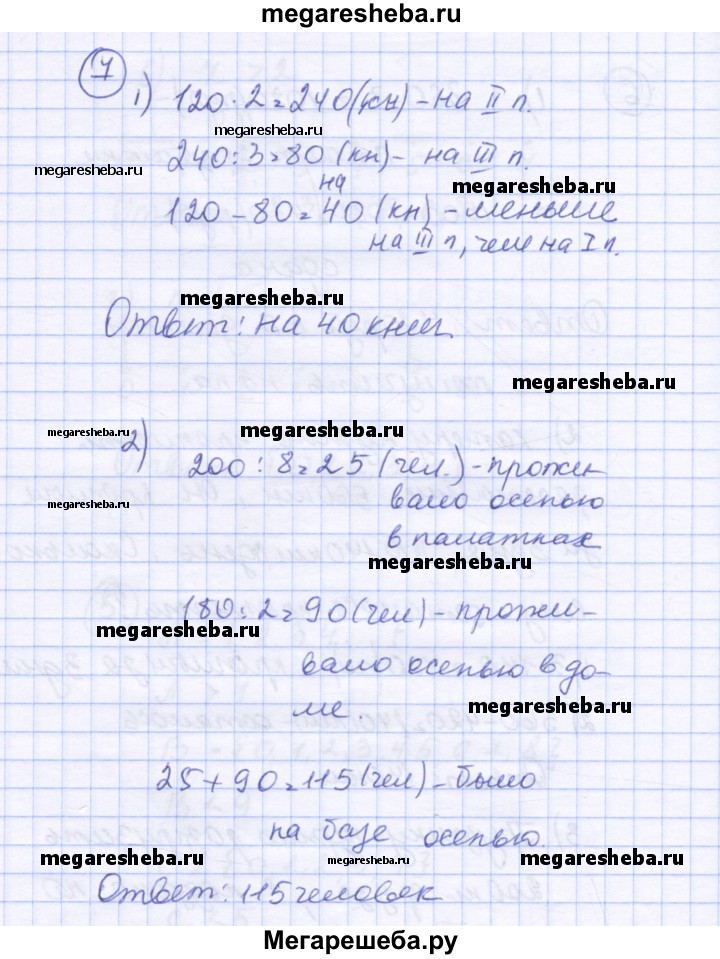 megaresheba.ru
7
1) 120 · 2 = 240 (кн) – на II п.
megaresheba.ru
240 : 3 = 80 (кн) – на III п.
megaresheba.ru
megaresheba.ru
на
120 – 80 = 40 (кн) – меньше
на III п, чем на I п.
megaresheba.ru
Ответ: на 40 книг.
megaresheba.ru
megaresheba.ru
megaresheba.ru
2) 200 : 8 = 25 (чел.) – прожи
вало осенью
megaresheba.ru
в палатках
megaresheba.ru
180 : 2 = 90 (чел) – прожи –
megaresheba.ru
вало осенью в до–
ме.
megaresheba.ru
25 + 90 = 115 (чел) – было
на базе осенью.
megaresheba.ru
megaresheba.ru
megaresheba.ru
Ответ: 115 человек
Мегарешеба.ру